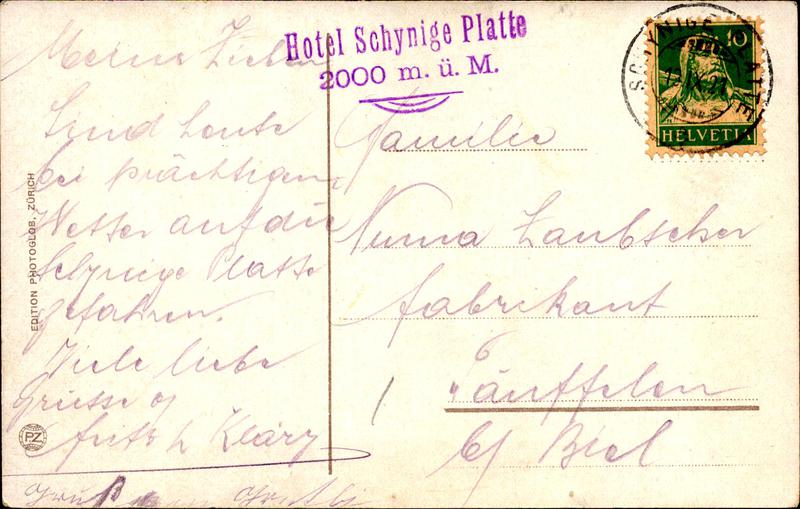 Hotel Schynige Platte
2000 m. ü. M.
SCHYNIGE PLATTE
10
HELVETIA
Meine Lieben
Sind heute
bei prächtigem
Wetter auf die
Schynige Platte
gefahren.
Viele liebe
Grüsse
Fritz & Kläry
Gruss
Familie
Numa Laubscher
Fabrikant
Täuffelen
b/ Biel
EDITION PHOTOGLOB, ZÜRICH
PZ